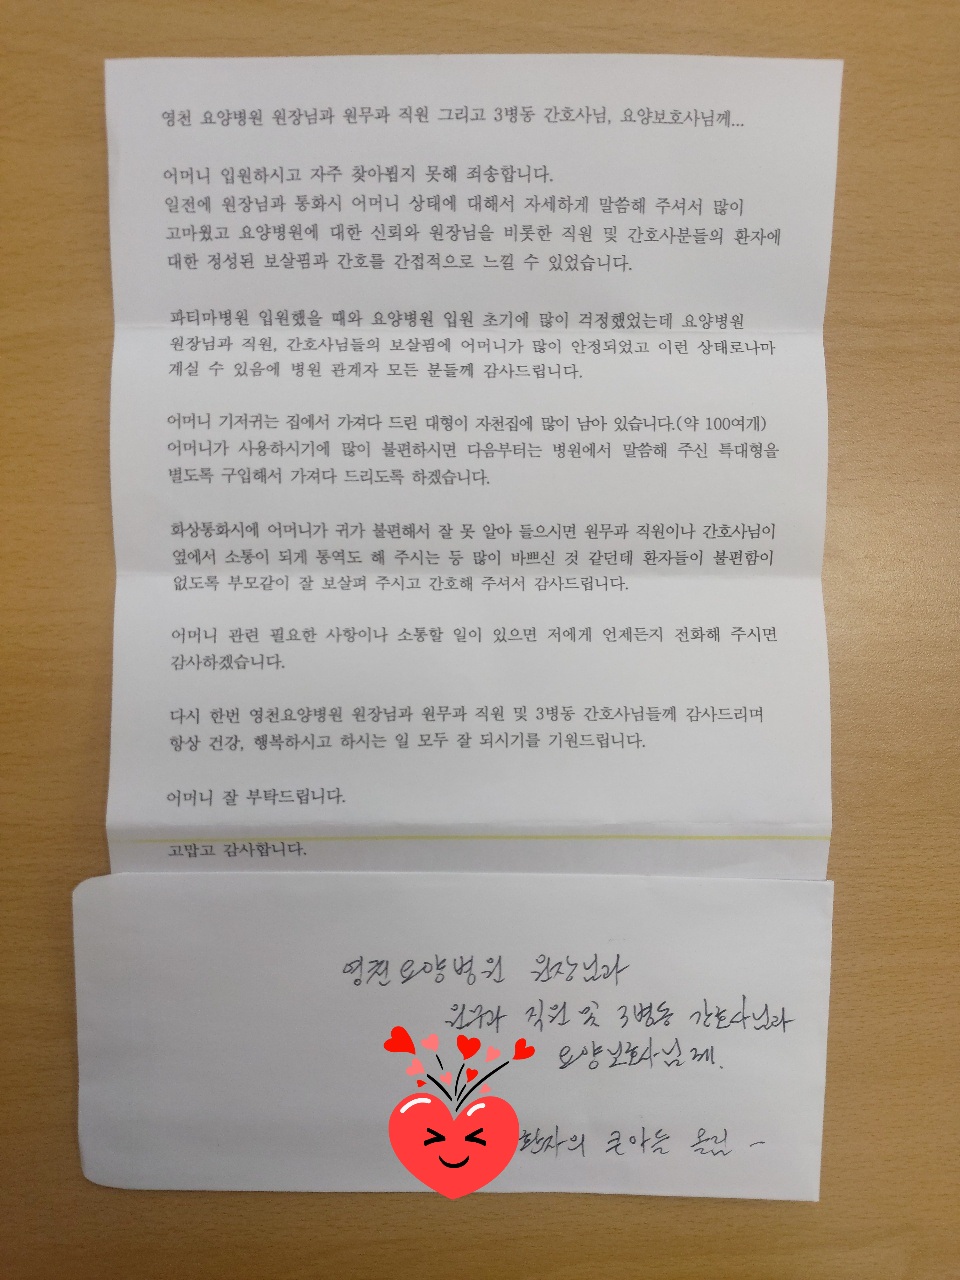 영천 요양병원 원장님과 원무과 직원 그리고 3병동 간호사님, 요양보호사님께...
어머니 입원하시고 자주 찾아뵙지 못해 죄송합니다.
일전에 원장님과 통화시 어머니 상태에 대해서 자세하게 말씀해 주셔서 많이
고마웠고 요양병원에 대한 신뢰와 원장님을 비롯한 직원 및 간호사분들의 환자에
대한 정성된 보살핌과 간호를 간접적으로 느낄 수 있었습니다.
파티마병원 입원했을 때와 요양병원 입원 초기에 많이 걱정했었는데 요양병원
원장님과 직원, 간호사님들의 보살핌에 어머니가 많이 안정되었고 이런 상태로나마
계실 수 있음에 병원 관계자 모든 분들께 감사드립니다.
어머니 기저귀는 집에서 가져다 드린 대형이 자천집에 많이 남아 있습니다.(약 100여개)
어머니가 사용하시기에 많이 불편하시면 다음부터는 병원에서 말씀해 주신 특대형을
별도록 구입해서 가져다 드리도록 하겠습니다.
화상통화시에 어머니가 귀가 불편해서 잘 못 알아 들으시면 원무과 직원이나 간호사님이
옆에서 소통이 되게 통역도 해 주시는 등 많이 바쁘신 것 같던데 환자들이 불편함이
없도록 부모같이 잘 보살펴 주시고 간호해 주셔서 감사드립니다.
어머니 관련 필요한 사항이나 소통할 일이 있으면 저에게 언제든지 전화해 주시면
감사하겠습니다.
다시 한번 영천요양병원 원장님과 원무과 직원 및 3병동 간호사님들께 감사드리며
항상 건강, 행복하시고 하시는 일 모두 잘 되시기를 기원드립니다.
어머니 잘 부탁드립니다.
고맙고 감사합니다.
영천요양병원 원장님과
원무과 직원 및 3병동 간호사님과
요양보호사님께.
환자의 큰아들 올림 -